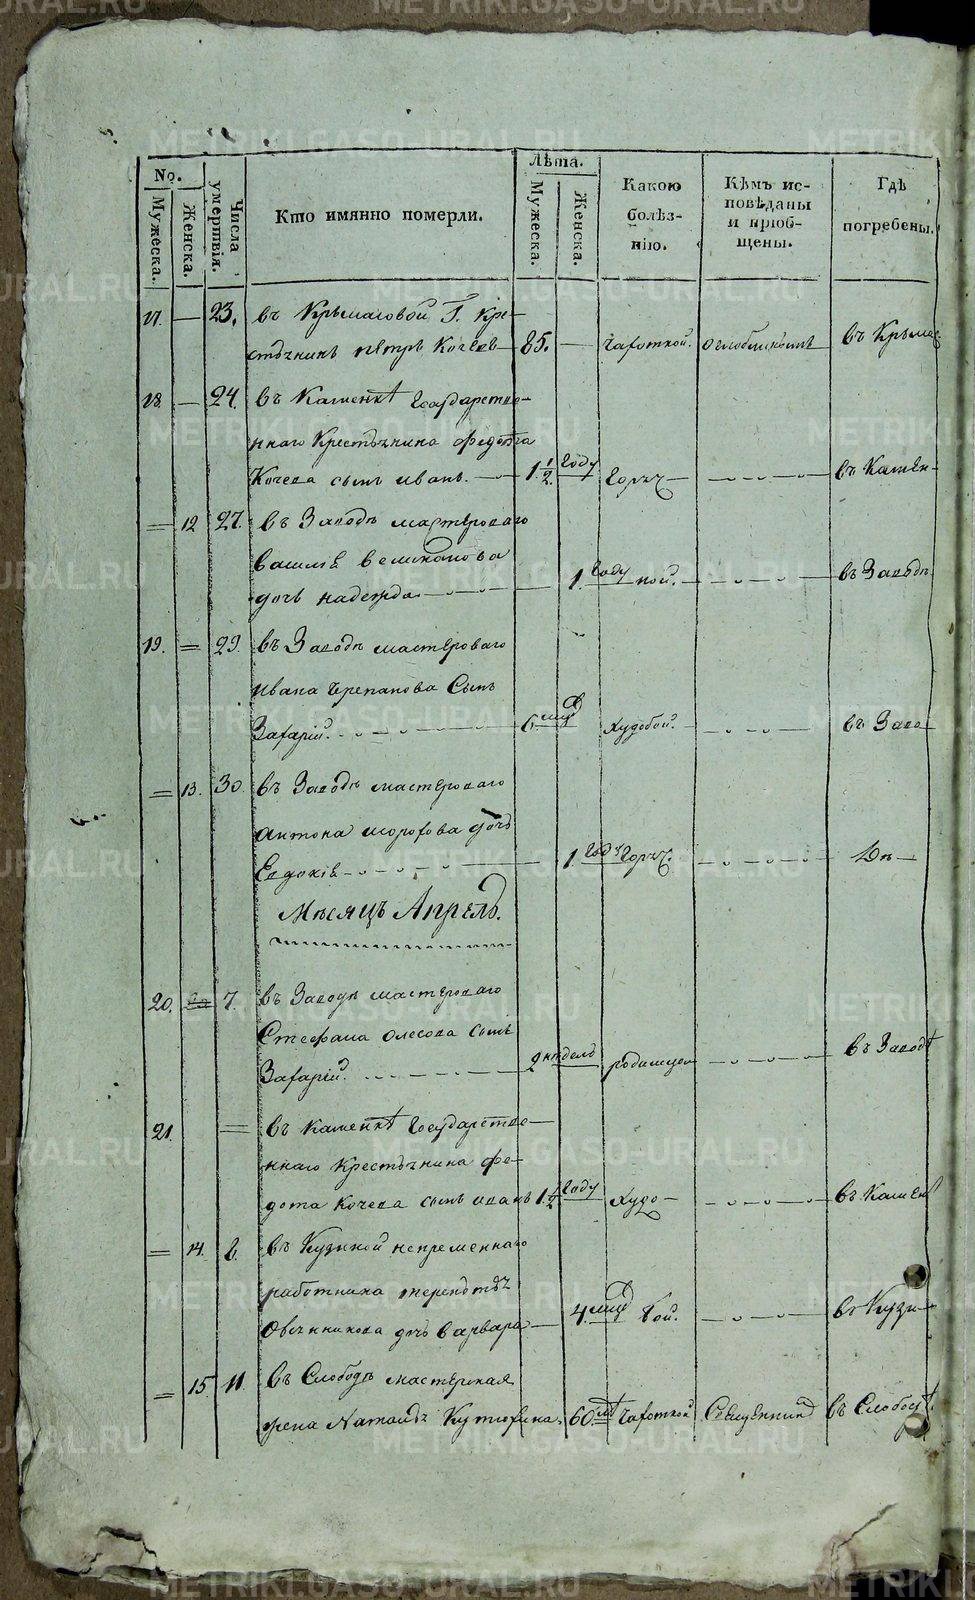 METRIKI.GASO-URAL.RU
No.
Мужеска.
Женска.
Числа умертвія.
Кто имянно померли.
Лѣта.
Мужеска.
Женска.
Какою болѣз-нію.
Кѣмъ ис-повѣданы и пріоб-щены.
Гдѣ погребены.
17. — 23. въ Крымасовой Г. Кре-
стьянинъ Петръ Кочевъ 85. — чахоткой.
18. — 24. въ Каменкѣ Государстве-
ннаго Крестьянина Федота
Кочева сынъ иванъ. — 1 1/2 году горяч — въ Камен-
= 12 27. въ Заводѣ мастероваго
василіе великанова
дочь надежда. 1. году кой. въ Заводѣ
19. = 29. въ Заводѣ мастероваго
ивана Черепанова Сынъ
Захарій. 6. худобой. въ Заво
= 13. 30. въ Заводѣ мастероваго
антона дочь
Евдокія 1 годъ горяч.
Мѣсяцъ Апрель.
20. 7. въ Заводѣ мастероваго
Стефана сынъ
Захарій. 2 недель родимцом въ Заводѣ
21. = въ Каменкѣ Государстве-
ннаго Крестьянина фе-
дота Кочева сынъ иванъ 1 1/2 году худо- въ Камен
= 14. въ Кузиной непременнаго
работника терентья
Овчинникова дочь варвара — 4. бой. въ Кузи
= 15. 11. въ Слободѣ мастерская
жена Наталья Кутюхина. 60 чахоткой Священник въ Слободѣ